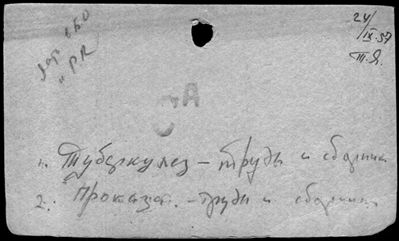 24/IX.57
Т.Я.
1. Туберкулез – труды и сборники
2. Проказа. – труды и сборники